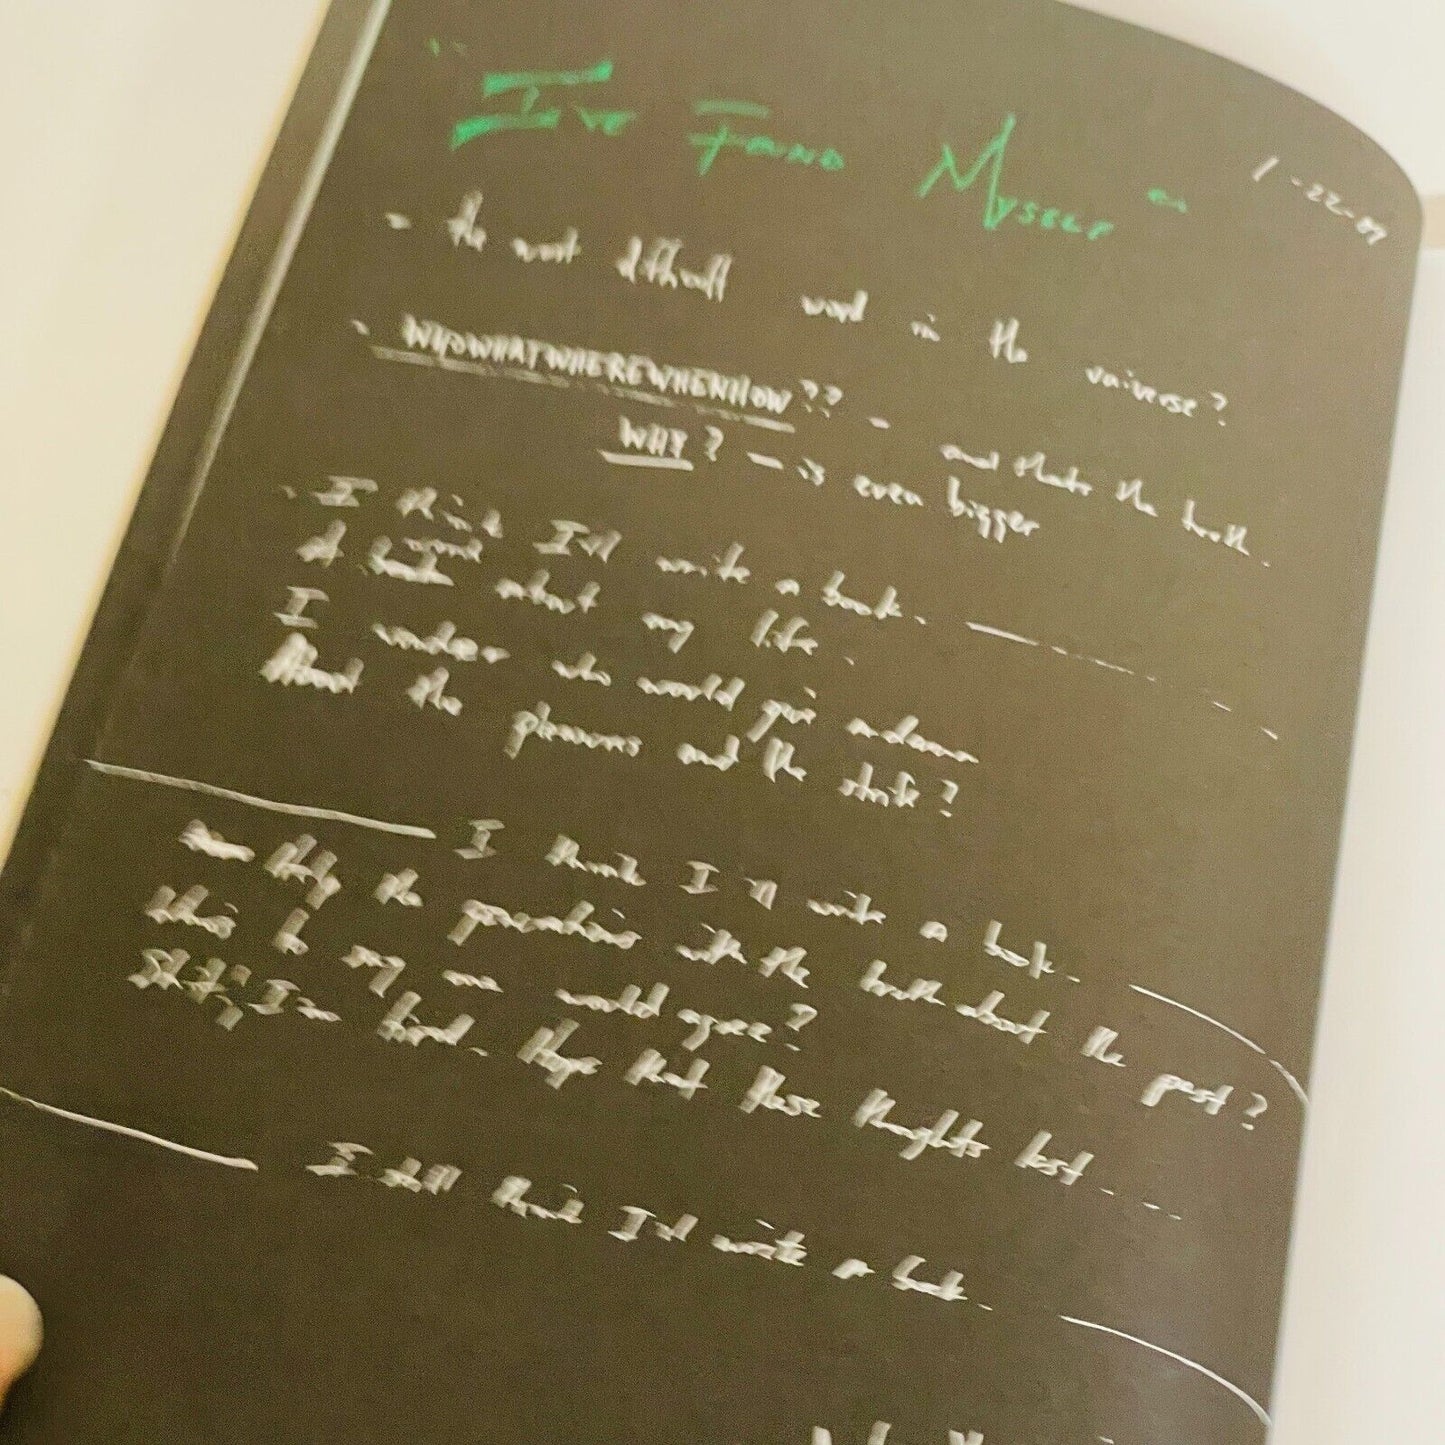 "I've Found Myself"
1-22-07
- the most difficult word in the universe?
- WHOWHATWHEREWHENHOW?? - and thats the truth.
WHY? - is even bigger
. I think I'll write a book.
about my life.
I wonder who would give a damn
About the phrauns and the
I think I'll write a book.
the generations with the book about the past?
this to my own would agree?
I'm tired. Hope that these thoughts last....
I still think I'll write a book.